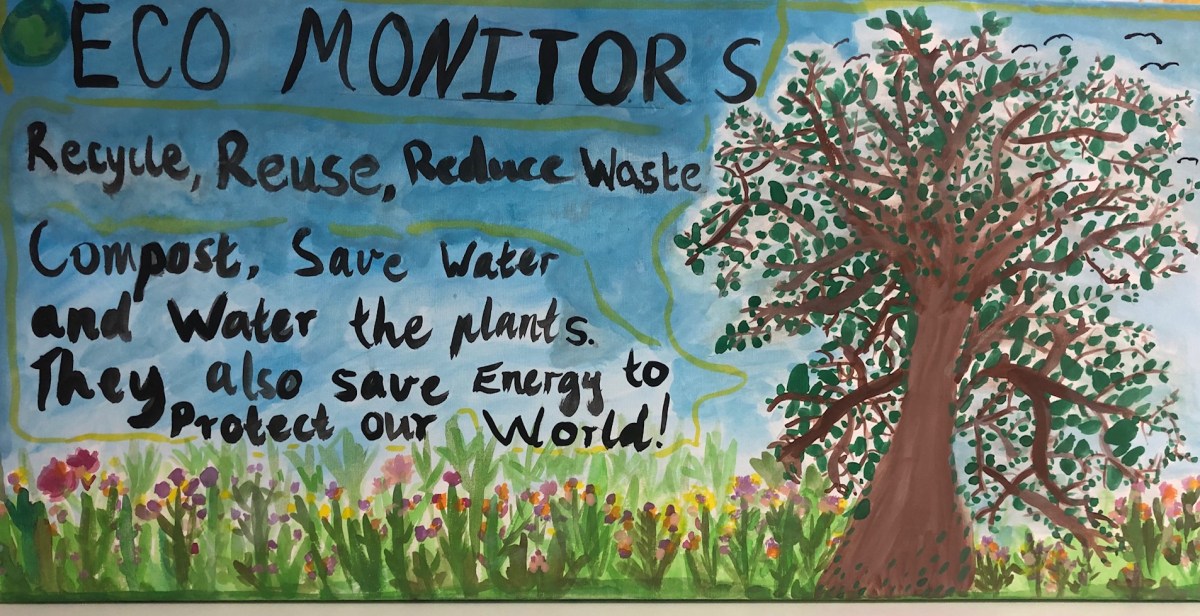 ECO MONITORS
Recycle, Reuse, Reduce Waste
Compost, Save Water
and Water the plants.
They also save Energy to
Protect our World!